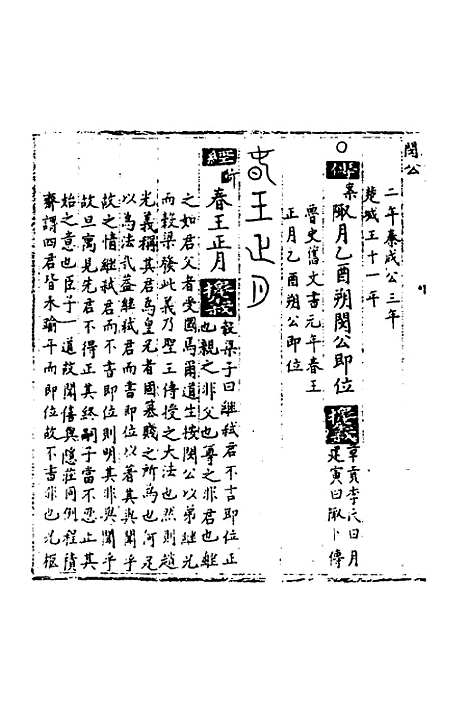 閔公
二年秦成公三年
楚成王十一年
○傳案陬月乙酉朔閔公即位擬義章貢李氏曰月
建寅曰陬卜傳
魯史舊文書元年春王
正月乙酉朔公即位
春王正月
經 春王正月擬義穀梁子曰繼弒君不言即位正
也親之非父也尊之非君也繼
之如君父者受國焉爾道生按閔公以弟繼兄
而穀梁發此義乃聖王傳授之大法也然則趙
光義稱其君為皇兄者國篡賤之所為也何足
以為法哉蓋繼弒君而書即位以著其與聞乎
故之情繼弒君而不書即位則明其非與聞乎
故且寓見先君不得正其終嗣子當不忍正其
始之意也臣子一道故閔僖與隱莊同例程積
齋謂四君皆未踰年而即位故不書非也況